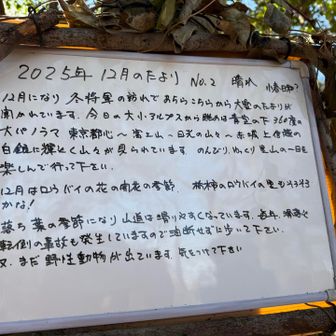 2025年 12月のたより No.2 晴れ 小春日和?
12月になり 冬将軍の訪れであちらこちらから大雪のたよりが
聞かれています。今日の大小アルプスから晴れの青空の下 360度の
大パノラマ 東京都心〜富士山〜日光の山々〜赤城 上信越の
白銀に輝く山々が見られています のんびり、ゆっくり里山の一日を
楽しんで行って下さい
12月はロウバイの花の開花の季節 栃木のロウバイの里もそろそろ
かな!
落ち葉の季節になり山道は滑りやすくなっています。
転倒の事故も発生していますので油断せずに歩いて下さい
又、まだ野生動物が出ています。気をつけて下さい